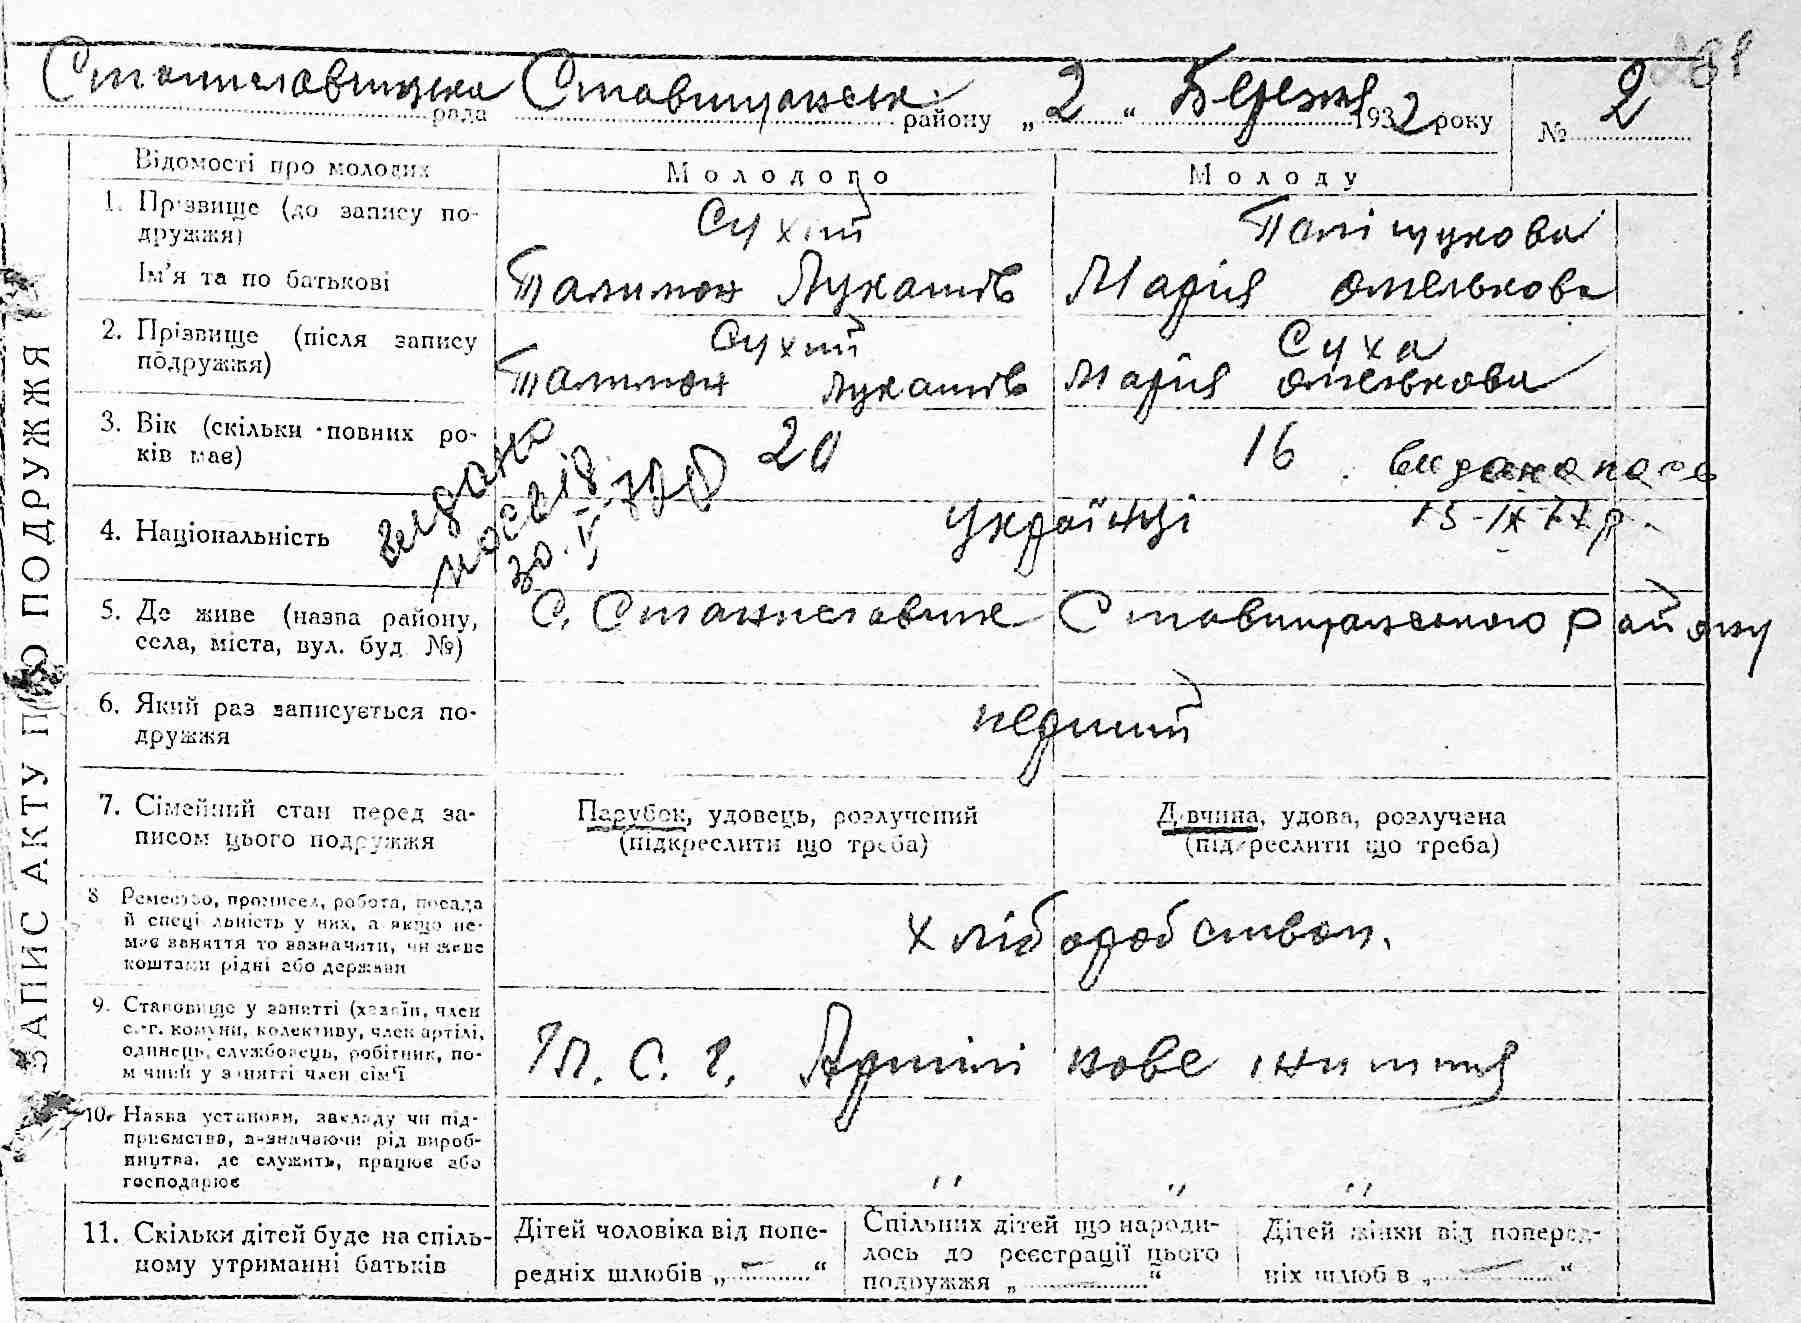 Станиславчицька рада Ставищанськ. району „2“ Березня 1932 року № 2
ЗАПИС АКТУ ПРО ПОДРУЖЖЯ
Відомості про молодих Молодого Молоду
1. Прізвище (до запису по-
дружжя) Сухий Поліщукова
Ім'я та по батькові Талимон Лукашів Марія Омелькова
2. Прізвище (після запису
подружжя) Сухий Суха
Талимон Лукашів Марія Омелькова
3. Вік (скільки повних ро-
ків має) 20 16
видано
30.V
видана
15-IX 77р.
4. Національність українці
5. Де живе (назва району,
села, міста, вул. буд №) С. Станиславчик Ставищанського району
6. Який раз записується по-
дружжя перший
7. Сімейний стан перед за-
писом цього подружжя
Парубок, удовець, розлучений
(підкреслити що треба)
Дівчина, удова, розлучена
(підкреслити що треба)
8 Ремество, промисел, робота, посада
й спеціяльність у них, а якщо не-
має заняття то зазначити, чи живе
коштами рідні або держави
хліборобством.
9. Становище у занятті (хазяїн, член
с.-г. комуни, колективу, член артілі,
одинець, службовець, робітник, по-
мічний у занятті член сім'ї
Чл. С. г. Артілі нове життя
10. Назва установи, закладу чи під-
приємства, зазначаючи рід вироб-
ництва, де служить, працює або
господарює
" " "
11. Скільки дітей буде на спіль-
ному утриманні батьків
Дітей чоловіка від попе-
редніх шлюбів „—“
Спільних дітей що народи-
лось до реєстрації цього
подружжя „ “
Дітей жінки від поперед-
ніх шлюбів „—“